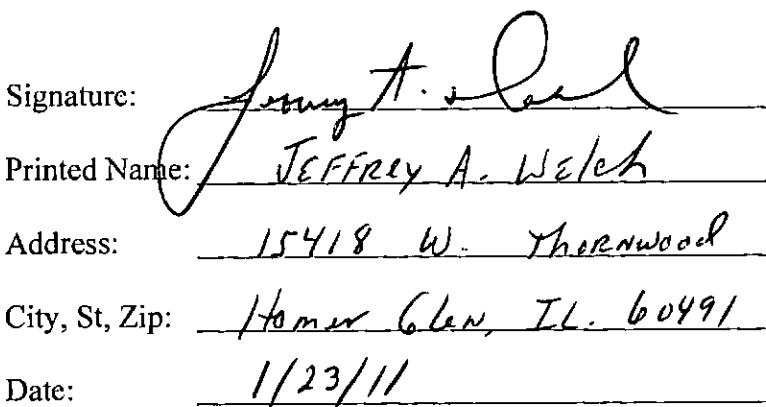 Signature:
Printed Name: JEFFREY A. WElch
Address: 15418 W. ThoRNwood
City, St, Zip: Homer Glen, IL. 60491
Date: 1/23/11